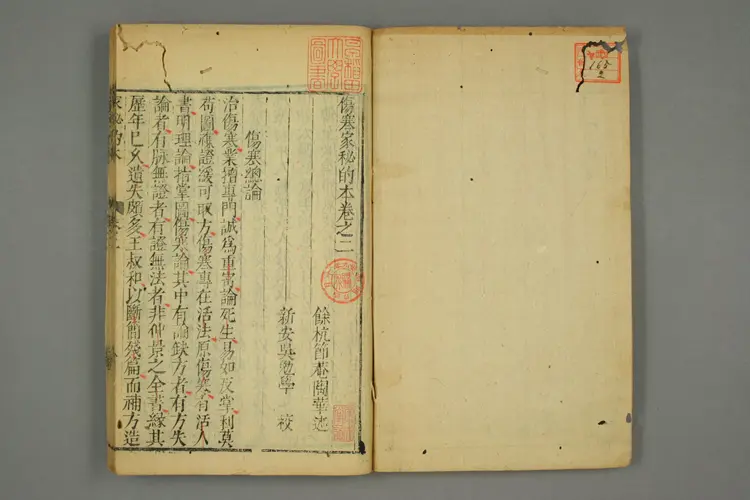 傷寒家秘的本卷之二
餘杭節菴陶華述
新安吳勉學 校
傷寒總論
治傷寒業擅專門誠爲重寄論死生易如反掌利莫
苟圖應證緩可取方傷寒專在活法原傷寒有活人
書明理論指掌圖傷寒論其中有論缺方者有方失
論者有脉無證者有證無法者非仲景之全書緣其
歷年已久遺失頗多王叔和以斷簡殘篇而補方造
165
2